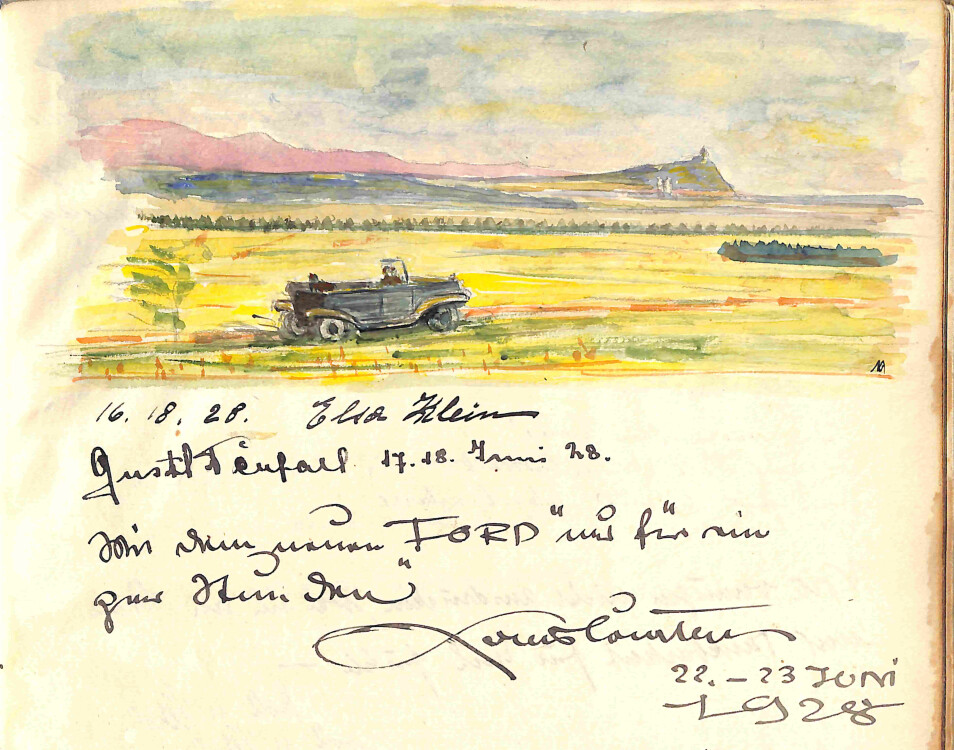 16. 18. 28. Elsa Klein
Gustl 17. 18. Juni 28.
Mit dem neuen FORD "nur für ein
par Stunden"
22. – 23 JUNI
1928